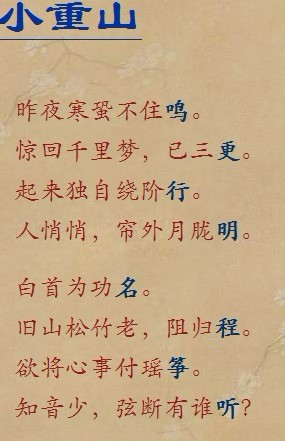 小重山
昨夜寒蛩不住鸣。
惊回千里梦，已三更。
起来独自绕阶行。
人悄悄，帘外月胧明。
白首为功名。
旧山松竹老，阻归程。
欲将心事付瑶筝。
知音少，弦断有谁听?